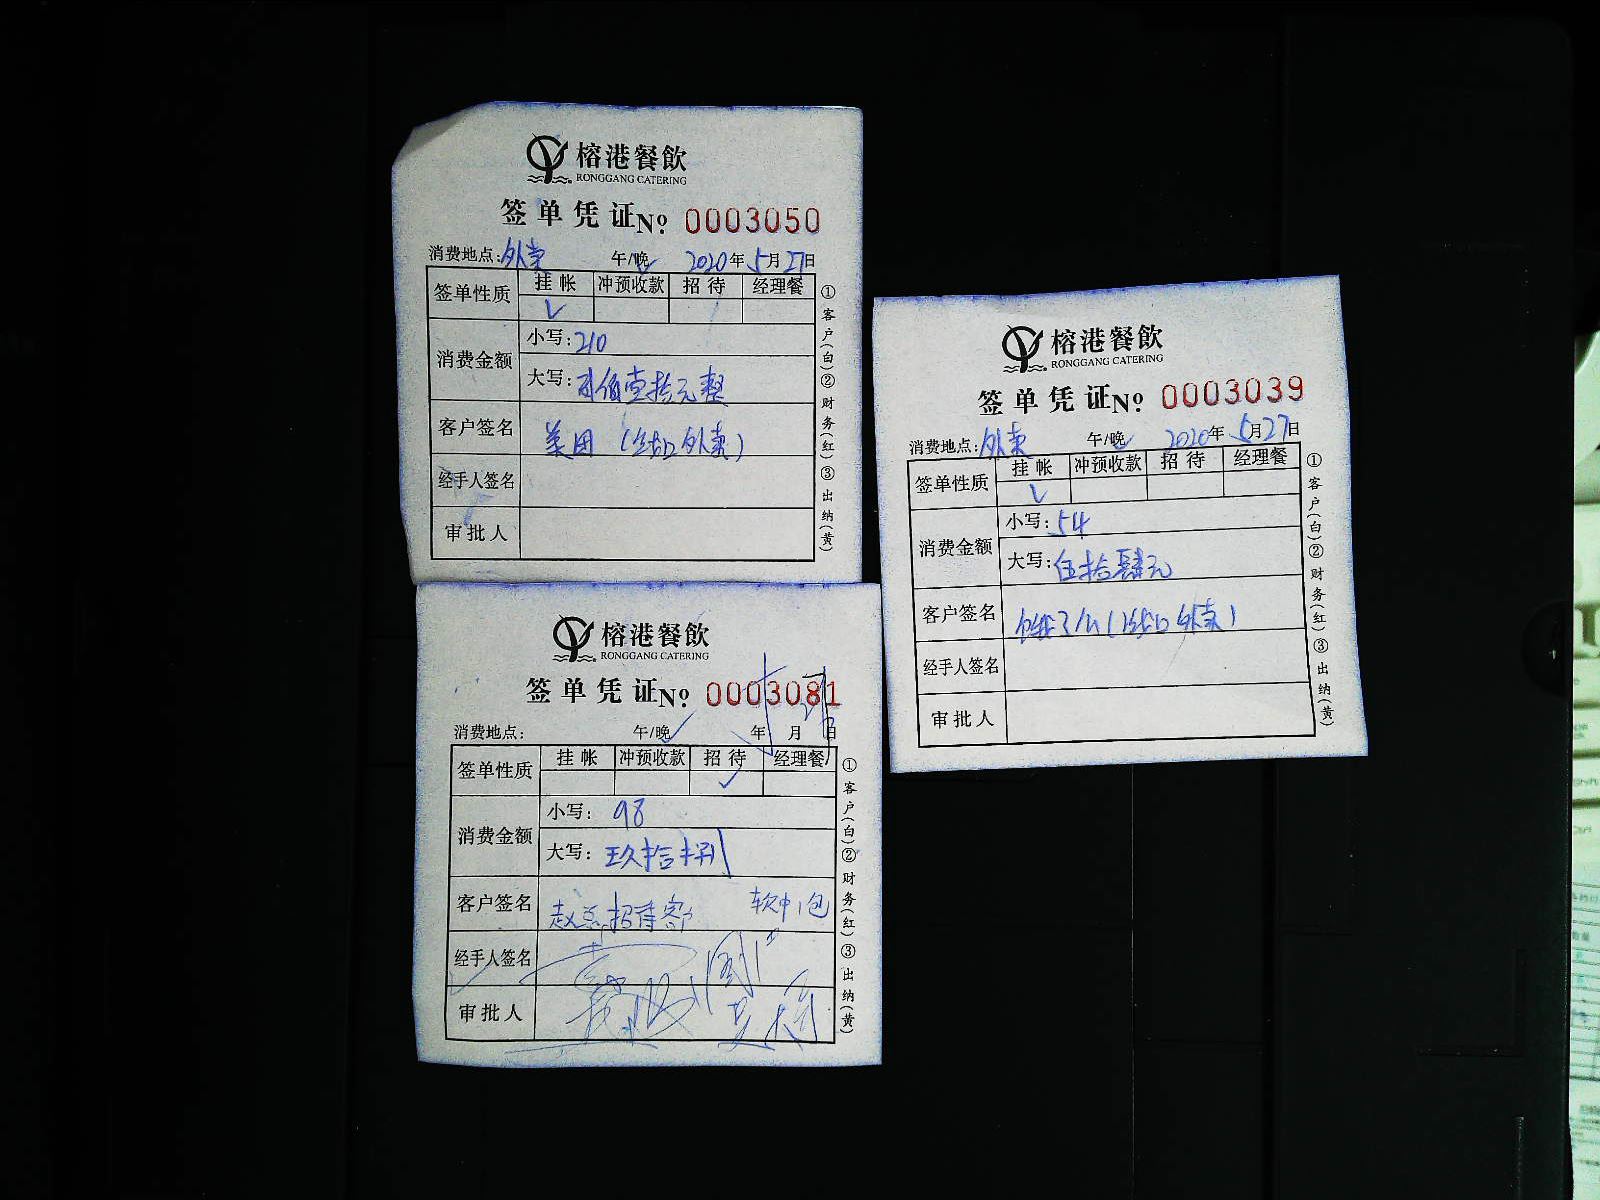 榕港餐飲
RONGGANG CATERING
签单凭证№ 0003050
消费地点:外卖 午/晚 2020年5月27日
签单性质 挂帐 冲预收款 招待 经理餐
消费金额 小写:210
大写:贰佰壹拾元整
客户签名 美团( 外卖)
经手人签名
审批人
①客户(白)②财务(红)③出纳(黄)
榕港餐飲
RONGGANG CATERING
签单凭证№ 0003039
消费地点:外卖 午/晚 2020年5月27日
签单性质 挂帐 冲预收款 招待 经理餐
消费金额 小写:54
大写:伍拾肆元
客户签名 ( 外卖)
经手人签名
审批人
①客户(白)②财务(红)③出纳(黄)
榕港餐飲
RONGGANG CATERING
签单凭证№ 0003081
消费地点: 午/晚 年 月 日
签单性质 挂帐 冲预收款 招待 经理餐
消费金额 小写: 98
大写: 玖拾捌
客户签名 赵总招待客户 软中1包
经手人签名
审批人
①客户(白)②财务(红)③出纳(黄)